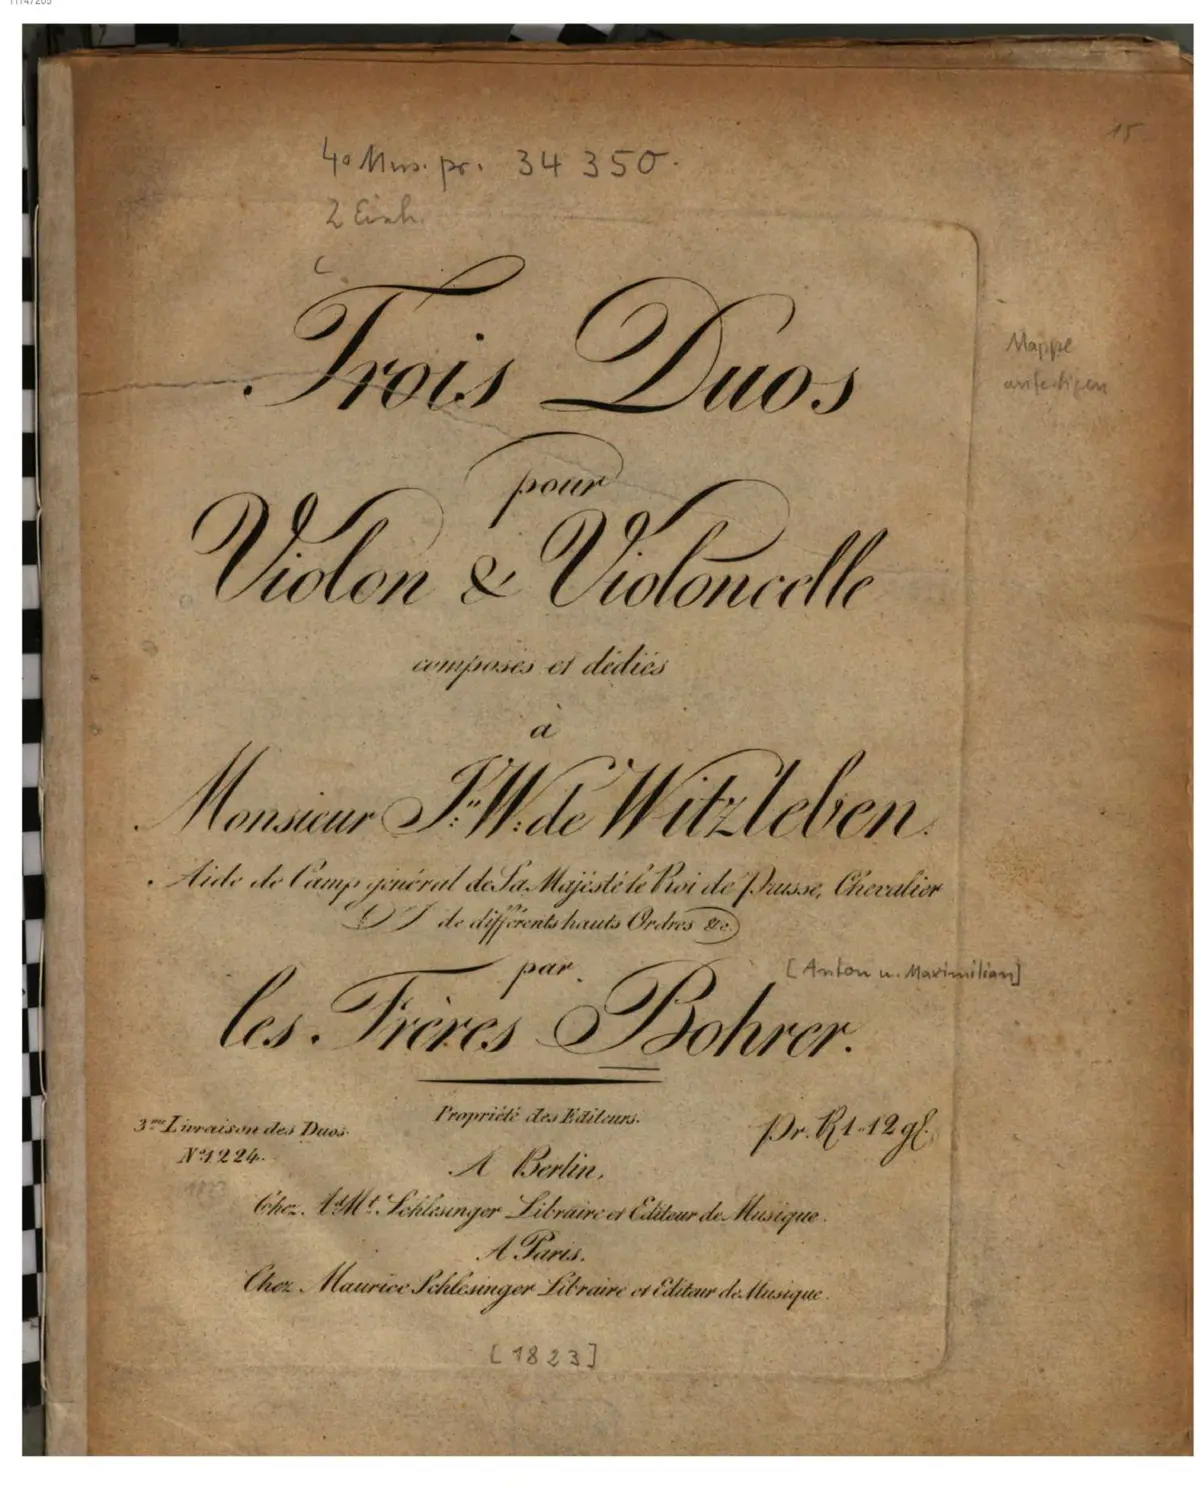 11147205
15
4° Mus. pr. 34 350.
2 Einh.
Trois Duos
Mappe
anfertigen
pour
Violon & Violoncelle
composés et dédiés
à
Monsieur J.n W: de Witzleben.
Aide de Camp général de Sa Majésté le Roi de Prusse, Chevalier
de différents hauts Ordres &c.
par
[Anton u. Maximilian]
les Frères Bohrer.
Propriété des Editeurs.
3me Livraison des Duos.
Pr. R 1-12 gl.
No 1224.
1823
A Berlin,
Chez Ad Mt Schlesinger Libraire et Editeur de Musique.
A Paris.
Chez Maurice Schlesinger Libraire et Editeur de Musique.
[1823]